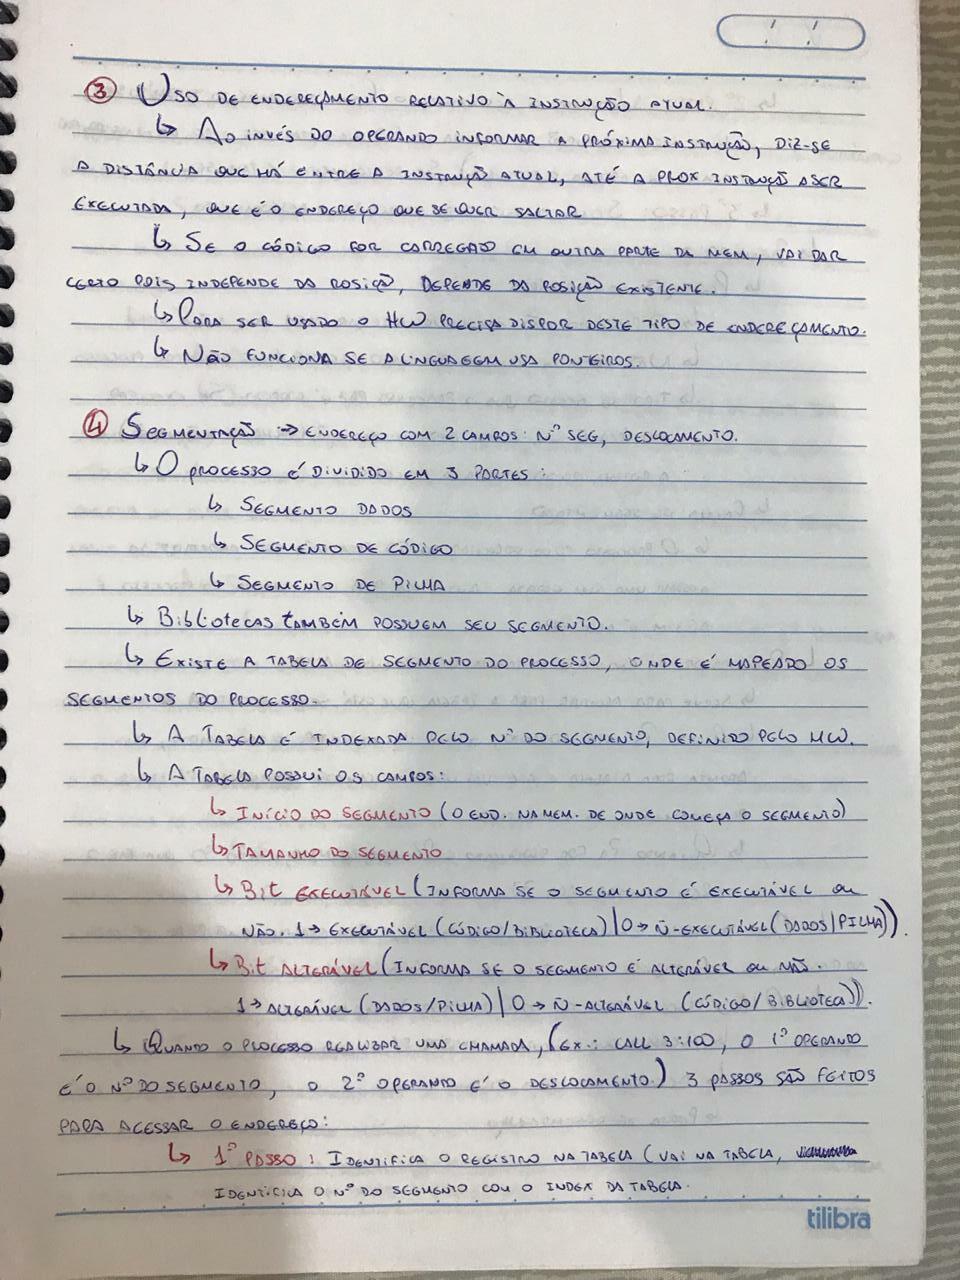 3 USO DE ENDEREÇAMENTO RELATIVO À INSTRUÇÃO ATUAL.
↳ AO INVÉS DO OPERANDO INFORMAR A PRÓXIMA INSTRUÇÃO, DIZ-SE
A DISTÂNCIA QUE HÁ ENTRE A INSTRUÇÃO ATUAL, ATÉ A PROX INSTRUÇÃO A SER
EXECUTADA, QUE É O ENDEREÇO QUE SE QUER SALTAR
↳ SE O CÓDIGO FOR CARREGAO EM OUTRA PARTE DA MEM, VAI DAR
CERTO POIS INDEPENDE DA POSIÇÃO, DEPENDE DA POSIÇÃO EXISTENTE.
↳ PARA SER USADO O HW PRECISA DISPOR DESTE TIPO DE ENDEREÇAMENTO.
↳ NÃO FUNCIONA SE A LINGUAGEM USA PONTEIROS.
4 SEGMENTAÇÃO → ENDEREÇO COM 2 CAMPOS: Nº SEG, DESLOCAMENTO.
↳ O PROCESSO É DIVIDIDO EM 3 PARTES:
↳ SEGMENTO DADOS
↳ SEGMENTO DE CÓDIGO
↳ SEGMENTO DE PILHA
↳ BIBLIOTECAS TAMBÉM POSSUEM SEU SEGMENTO.
↳ EXISTE A TABELA DE SEGMENTO DO PROCESSO, ONDE É MAPEADO OS
SEGMENTOS DO PROCESSO.
↳ A TABELA É INDEXADA PELO Nº DO SEGMENTO, DEFINIDO PELO HW.
↳ A TABELA POSSUI OS CAMPOS:
↳ INÍCIO DO SEGMENTO (O END. NA MEM. DE ONDE COMEÇA O SEGMENTO)
↳ TAMANHO DO SEGMENTO
↳ BIT EXECUTÁVEL (INFORMA SE O SEGMENTO É EXECUTÁVEL OU
NÃO. 1 → EXECUTÁVEL (CÓDIGO/BIBLIOTECA) | 0 → Ñ-EXECUTÁVEL (DADOS/PILHA)).
↳ BIT ALTERÁVEL (INFORMA SE O SEGMENTO É ALTERÁVEL OU NÃO.
1 → ALTERÁVEL (DADOS/PILHA) | 0 → Ñ-ALTERÁVEL (CÓDIGO/BIBLIOTECA)).
↳ QUANDO O PROCESSO REALIZAR UMA CHAMADA, (EX.: CALL 3:100, O 1º OPERANDO
É O Nº DO SEGMENTO, O 2º OPERANDO É O DESLOCAMENTO) 3 PASSOS SÃO FEITOS
PARA ACESSAR O ENDEREÇO:
↳ 1º PASSO: IDENTIFICA O REGISTRO NA TABELA (VAI NA TABELA,
IDENTIFICA O Nº DO SEGMENTO COM O INDEX DA TABELA.
tilibra